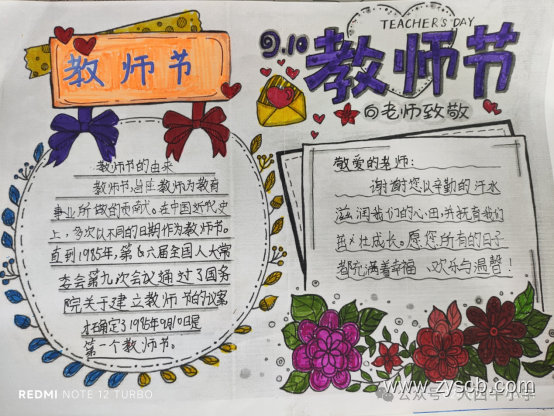 教师节
教师节的由来
教师节,旨在教师为教育
事业所做的贡献。在中国近代史
上,多次以不同的日期作为教师节。
直到1985年,第六届全国人大常
委会第九次会议通过了国务
院关于建立教师节的议案
才确定了1985年9月10日是
第一个教师节。
TEACHER'S DAY
9.10 教师节
向老师致敬
敬爱的老师:
谢谢您以辛勤的汗水
滋润我们的心田,并抚育我们
茁壮成长。愿您所有的日子
都充满着幸福、欢乐与温馨!
REDMI NOTE 12 TURBO
公众号
www.zyscb.com